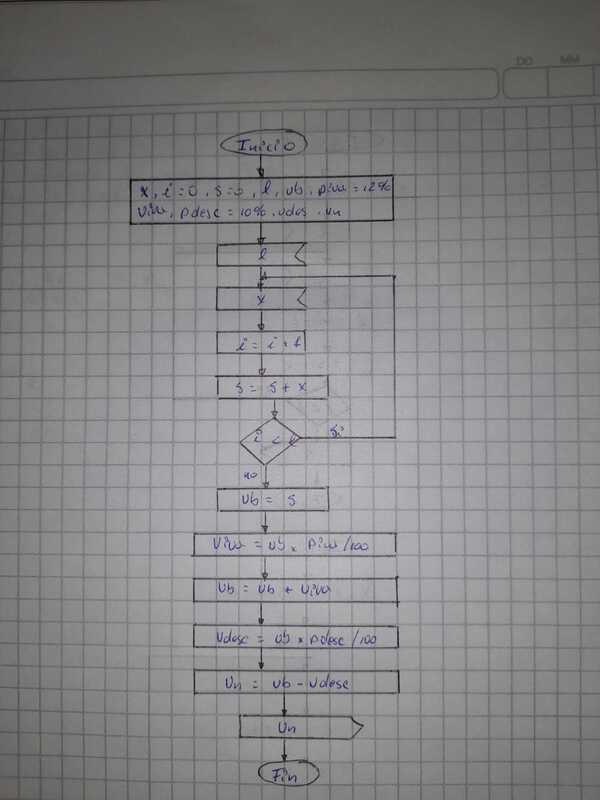 DD MM
Inicio
x, i = 0, s = 0, l, vb, piva = 12%
viva, pdesc = 10%, vdes, vn
l
x
i = i + 1
s = s + x
i < l
Si
no
vb = s
viva = vb x piva / 100
vb = vb + viva
vdesc = vb x pdesc / 100
vn = vb - vdesc
vn
Fin